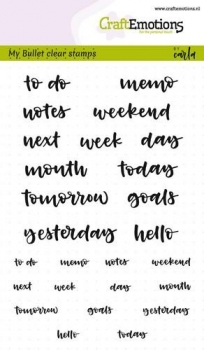 www.craftemotions.nl
CraftEmotions
My Bullet clear stamps
by carla
to do memo
notes weekend
next week day
month today
tomorrow goals
yesterday hello
to do memo notes weekend
next week day month
tomorrow goals yesterday
hello today